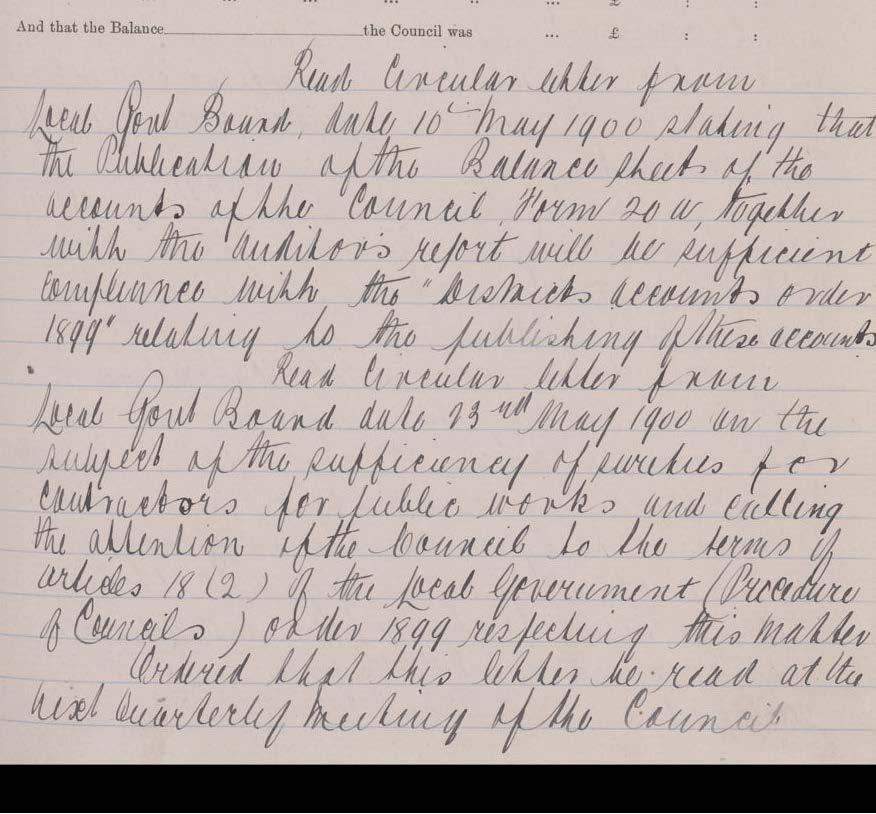 And that the Balance the Council was ... £ : :
Read Circular letter from
Local Govt Board, date 10th May 1900 stating that
the Publication of the Balance sheet of the
accounts of the Council, Form 20 a, together
with the auditor's report will be sufficient
compliance with the "Districts accounts order
1899" relating to the publishing of these accounts
Read Circular letter from
Local Govt Board date 23rd May 1900 on the
subject of the sufficiency of sureties for
contractors for public works and calling
the attention of the Council to the terms of
articles 18 (2) of the Local Government (Procedure
of Councils) order 1899 respecting this matter
Ordered that this letter be read at the
next Quarterly meeting of the Council